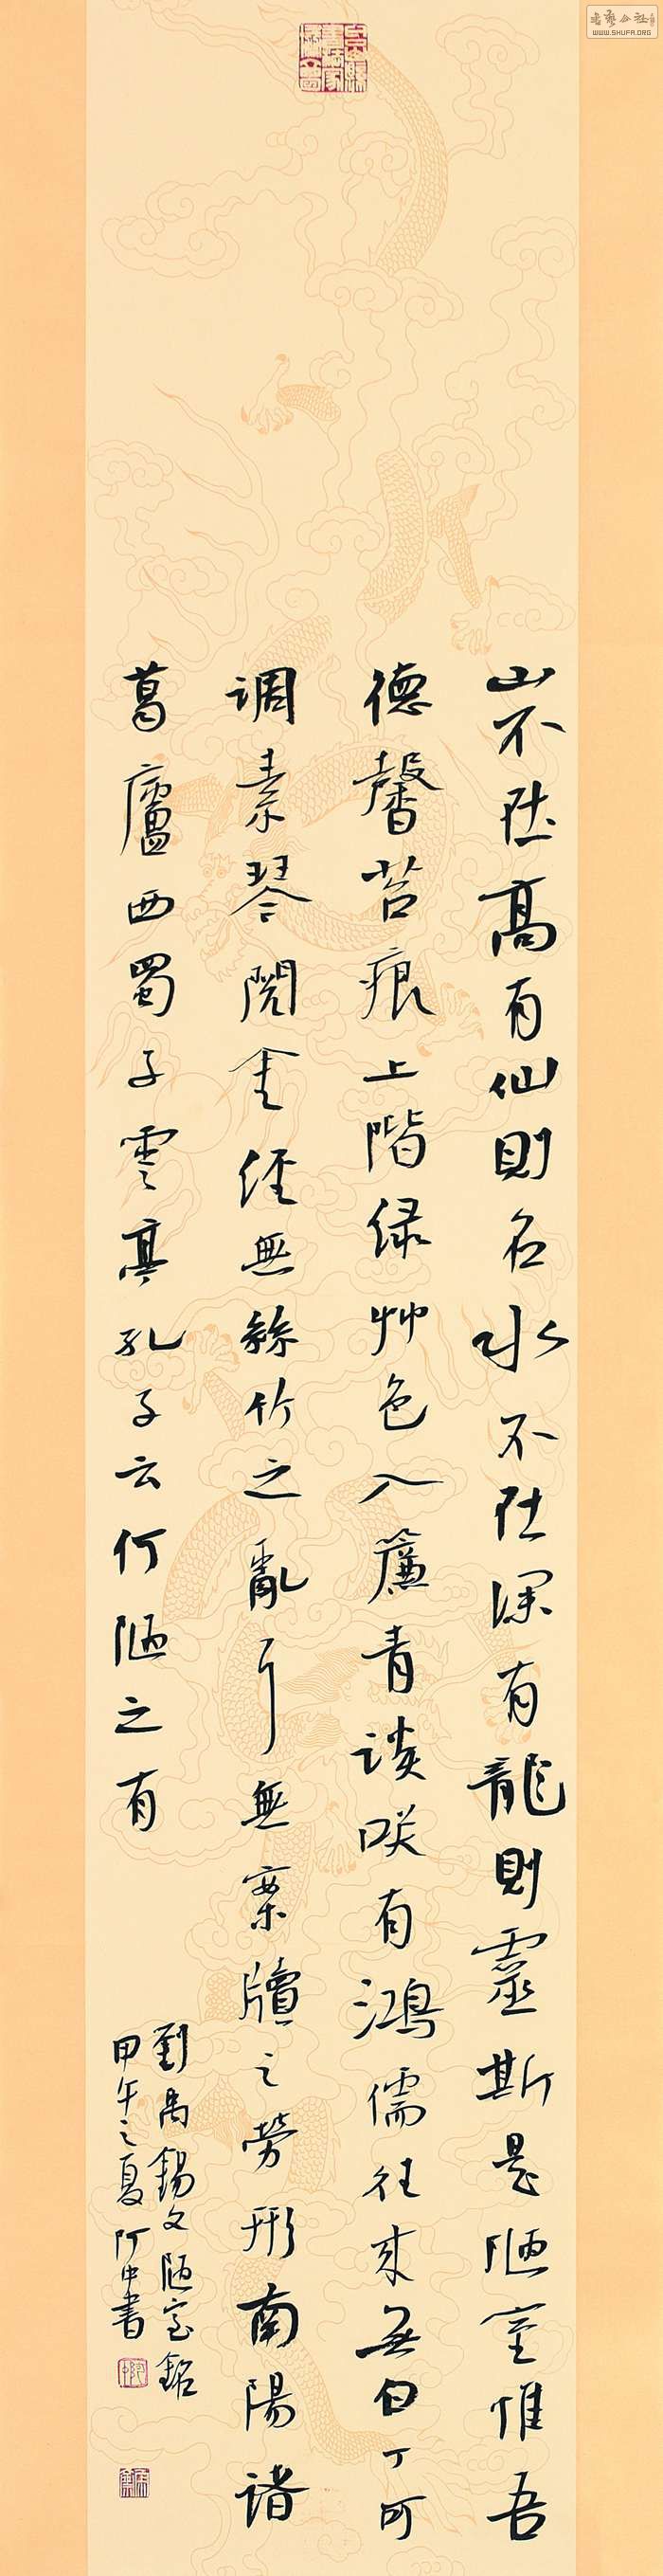 山不在高有仙則名水不在深有龍則靈斯是陋室惟吾
德馨苔痕上階绿艸色入簾青談咲有鴻儒往来無白丁可
调素琴閲金経無絲竹之亂耳無案牘之勞形南陽诸
葛廬西蜀子雲亭孔子云何陋之有
劉禹錫文陋室銘
甲午之夏阿中書
WWW.SHUFA.ORG